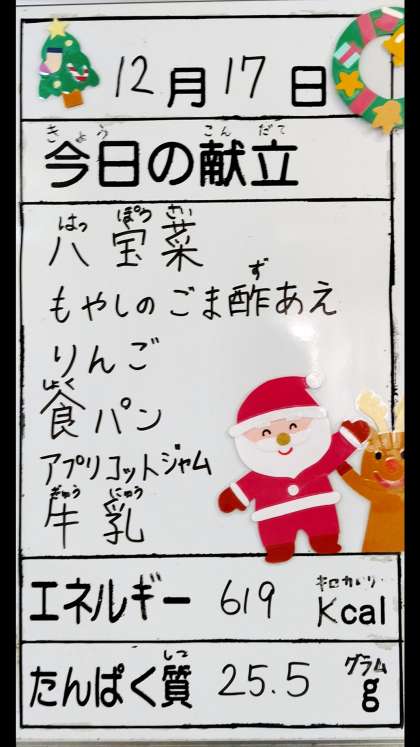 12月17日
きょう こんだて
今日の献立
はっ ぽう さい
八宝菜
ず
もやしのごま酢あえ
りんご
しょく
食パン
アプリコットジャム
ぎゅう にゅう
牛乳
キロカロリー
エネルギー 619 Kcal
しつ グラム
たんぱく質 25.5 g